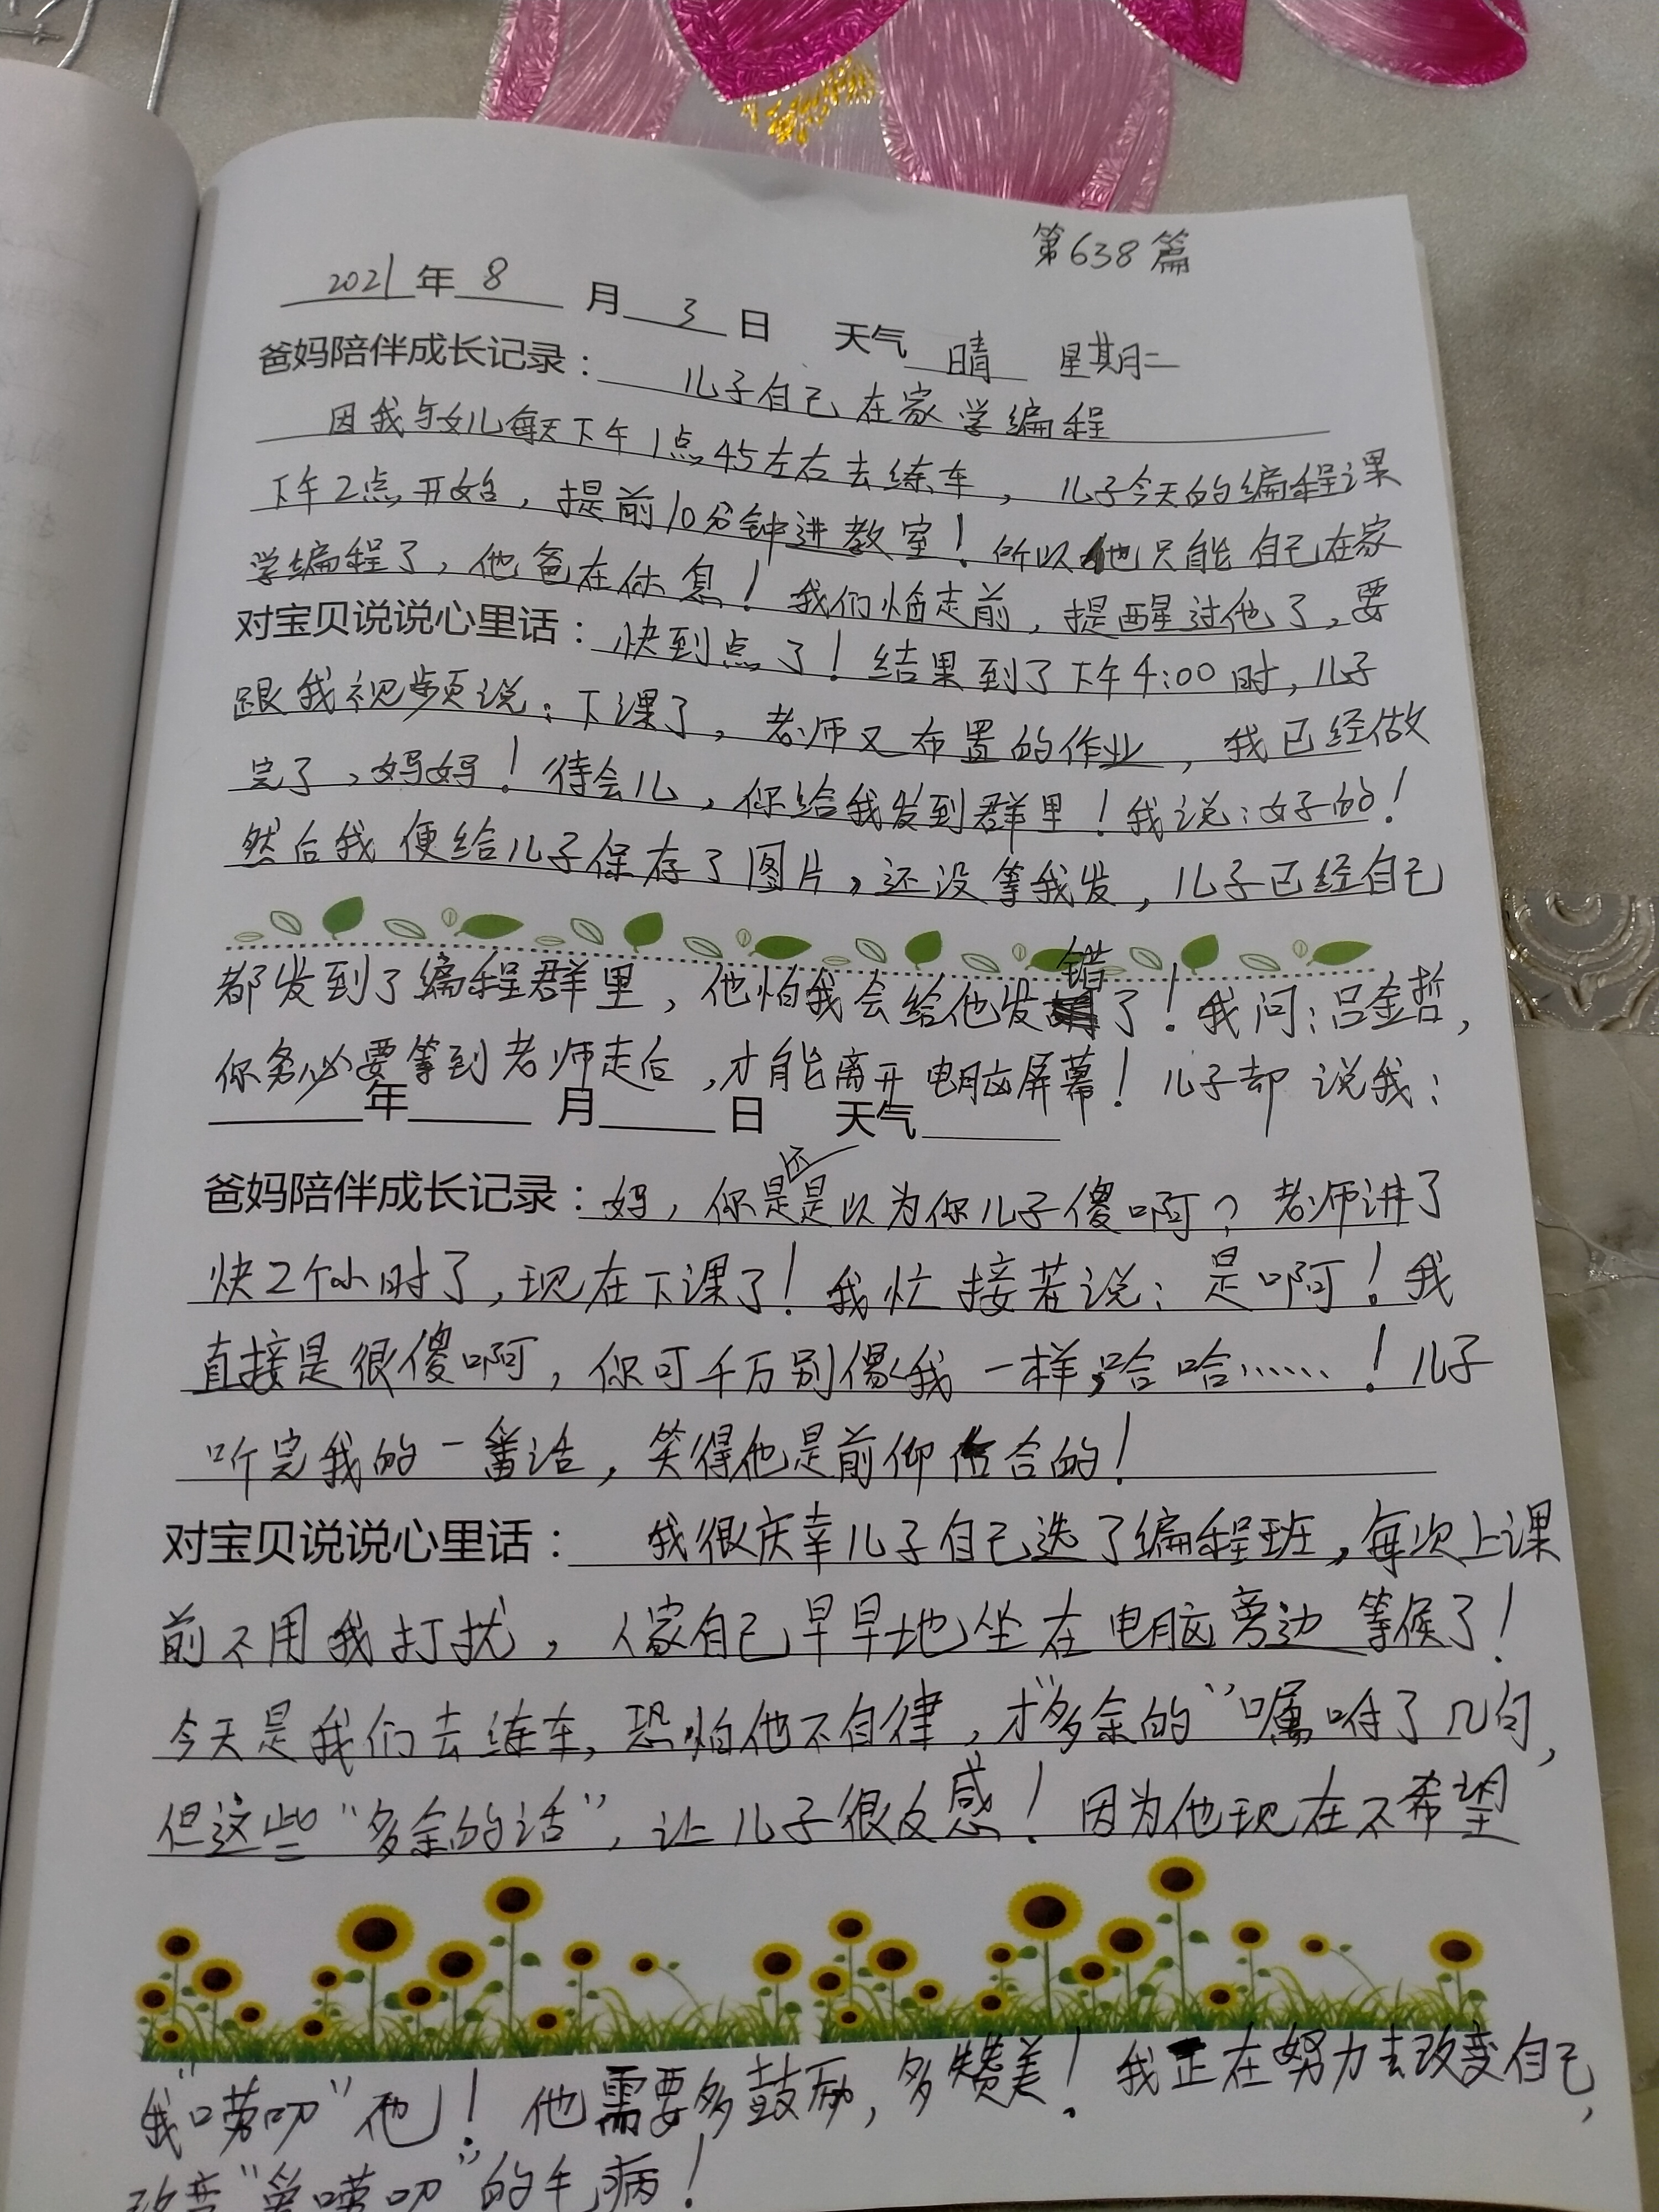 第638篇
2021年8月3日 天气晴 星期二
爸妈陪伴成长记录：儿子自己在家学编程
因我与女儿每天下午1点45左右去练车，儿子今天的编程课
下午2点开始，提前10分钟进教室！所以他只能自己在家
学编程了，他爸在休息！我们临走前，提醒过他了，要
对宝贝说说心里话：快到点了！结果到了下午4:00时，儿子
跟我视频说：下课了，老师又布置的作业，我已经做
完了，妈妈！待会儿，你给我发到群里！我说：好的！
然后我便给儿子保存了图片，还没等我发，儿子已经自己
都发到了编程群里，他怕我会给他发错了！我问：吕金哲，
你务必要等到老师走后，才能离开电脑屏幕！儿子却说我：
年 月 日 天气
爸妈陪伴成长记录：妈，你是还是以为你儿子傻啊？老师讲了
快2个小时了，现在下课了！我忙接着说：是啊！我
直接是很傻啊，你可千万别像我一样，哈哈……！儿子
听完我的一番话，笑得他是前仰合的！
对宝贝说说心里话：我很庆幸儿子自己选了编程班，每次上课
前不用我打扰，人家自己早早地坐在电脑旁边等候了！
今天是我们去练车，恐怕他不自律，才“多余的”嘱咐了几句，
但这些“多余的话”，让儿子很反感！因为他现在不希望
我“唠叨”他！他需要多鼓励，多赞美！我正在努力去改变自己，
改变“爱唠叨”的毛病！